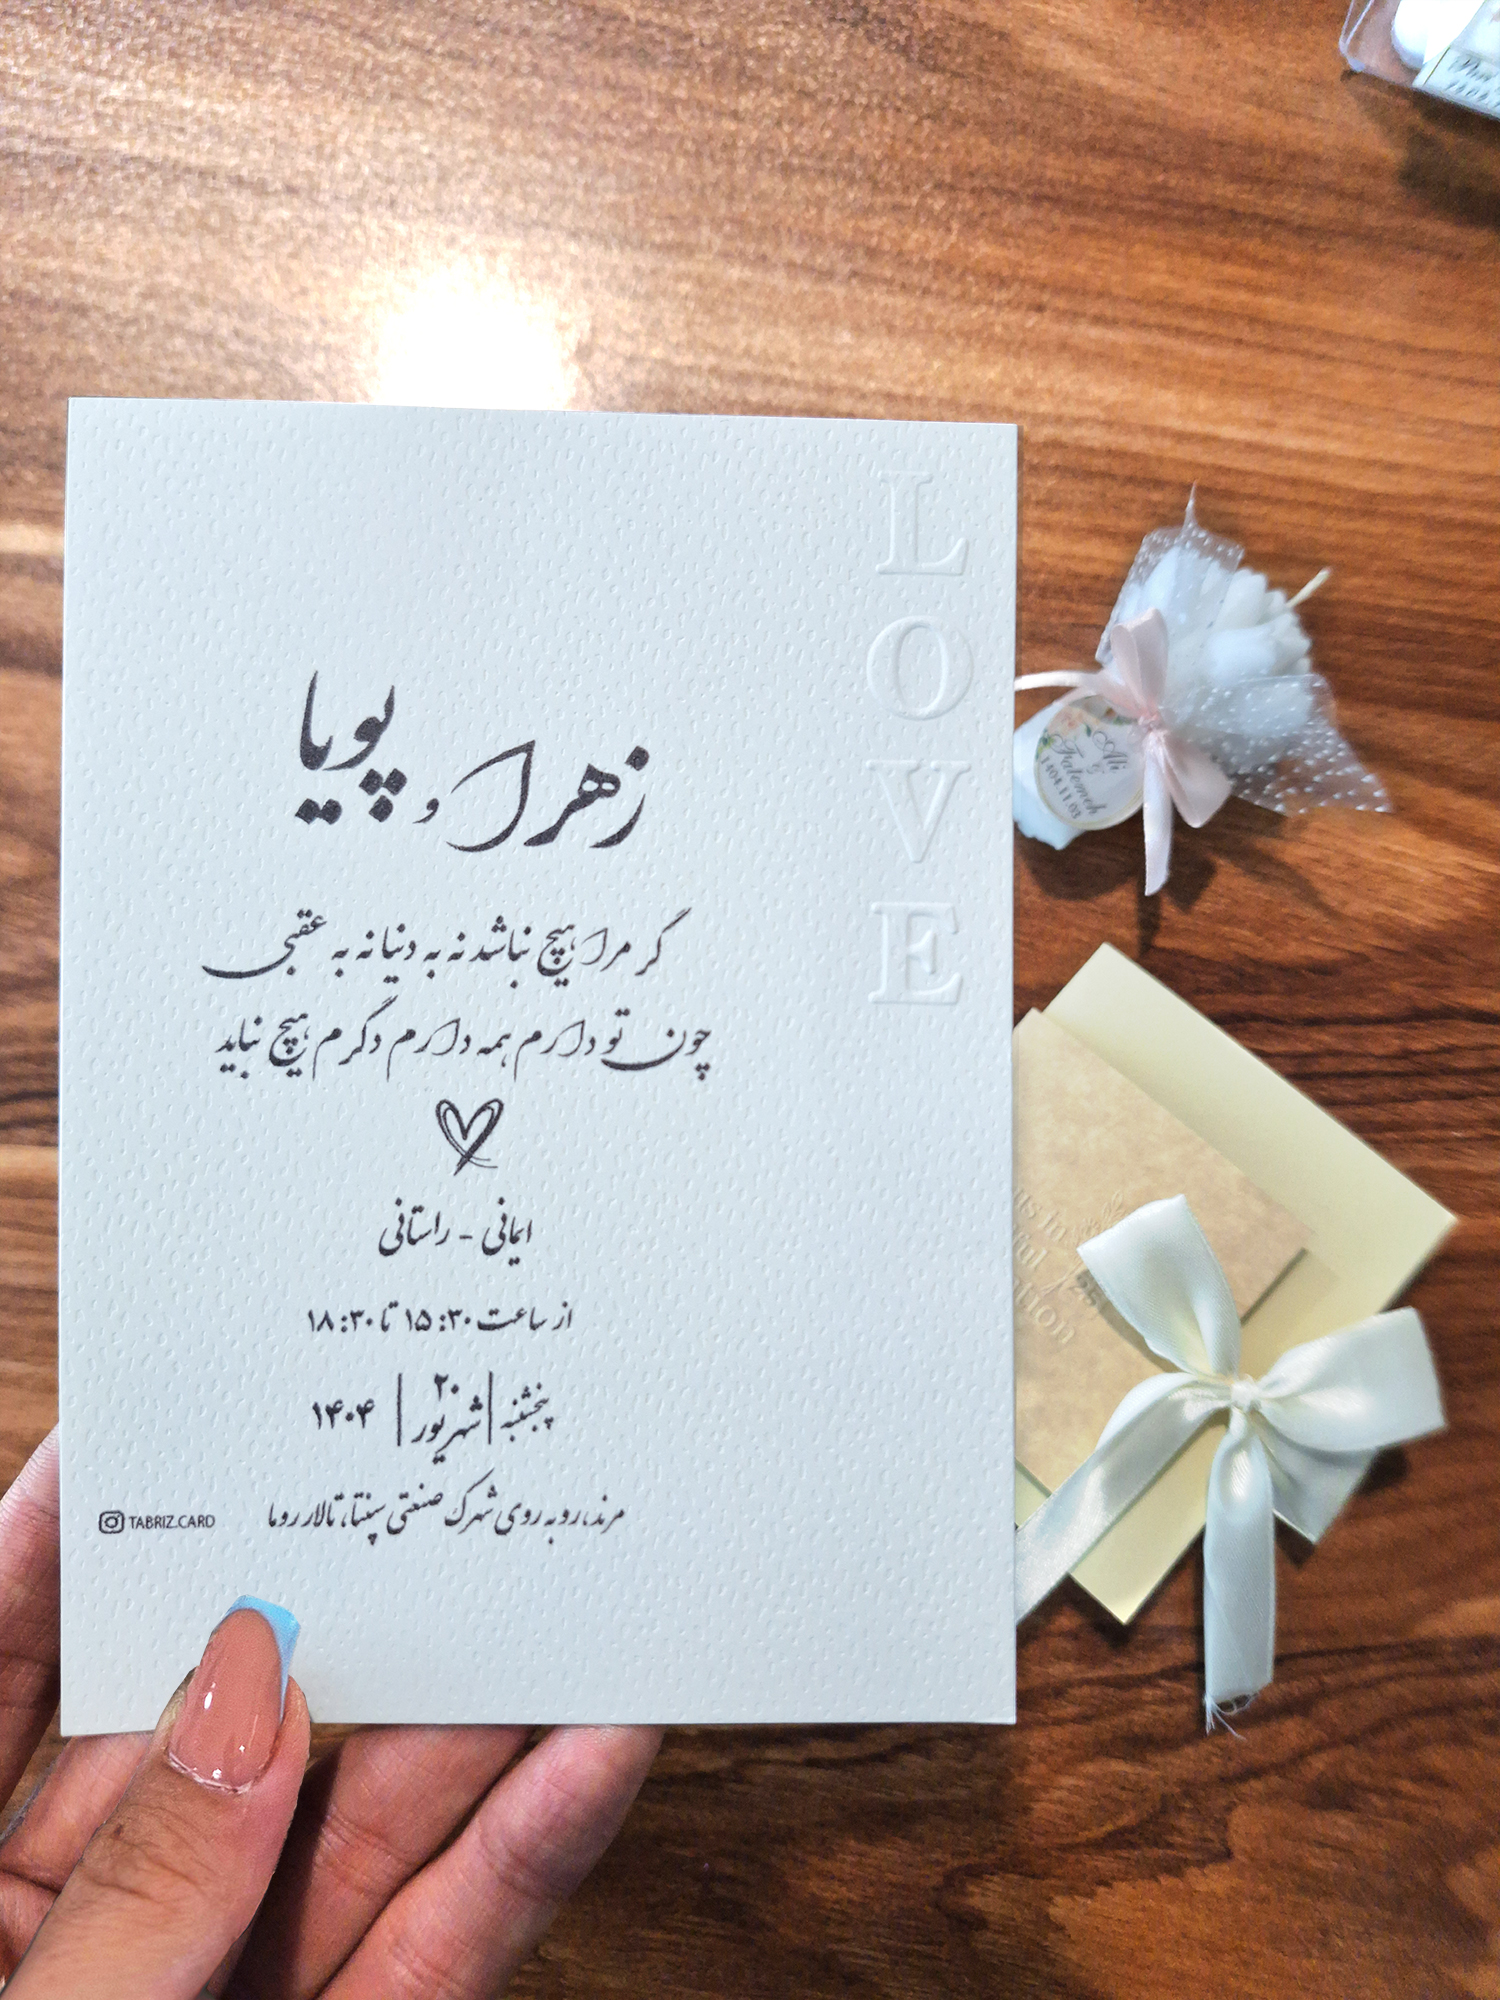 LOVE
زهرا و پویا
گر مرا هیچ نباشد نه به دنیا نه به عقبی
چون تو دارم همه دارم دگرم هیچ نباید
ایمانی - راستانی
از ساعت ۱۵:۳۰ تا ۱۸:۳۰
پنجشنبه | ۲۰ شهریور | ۱۴۰۴
مرند، رو به روی شهرک صنعتی سپنتا، تالار روما
TABRIZ.CARD
Ali
&
Fatemeh
1404.11.03
us in